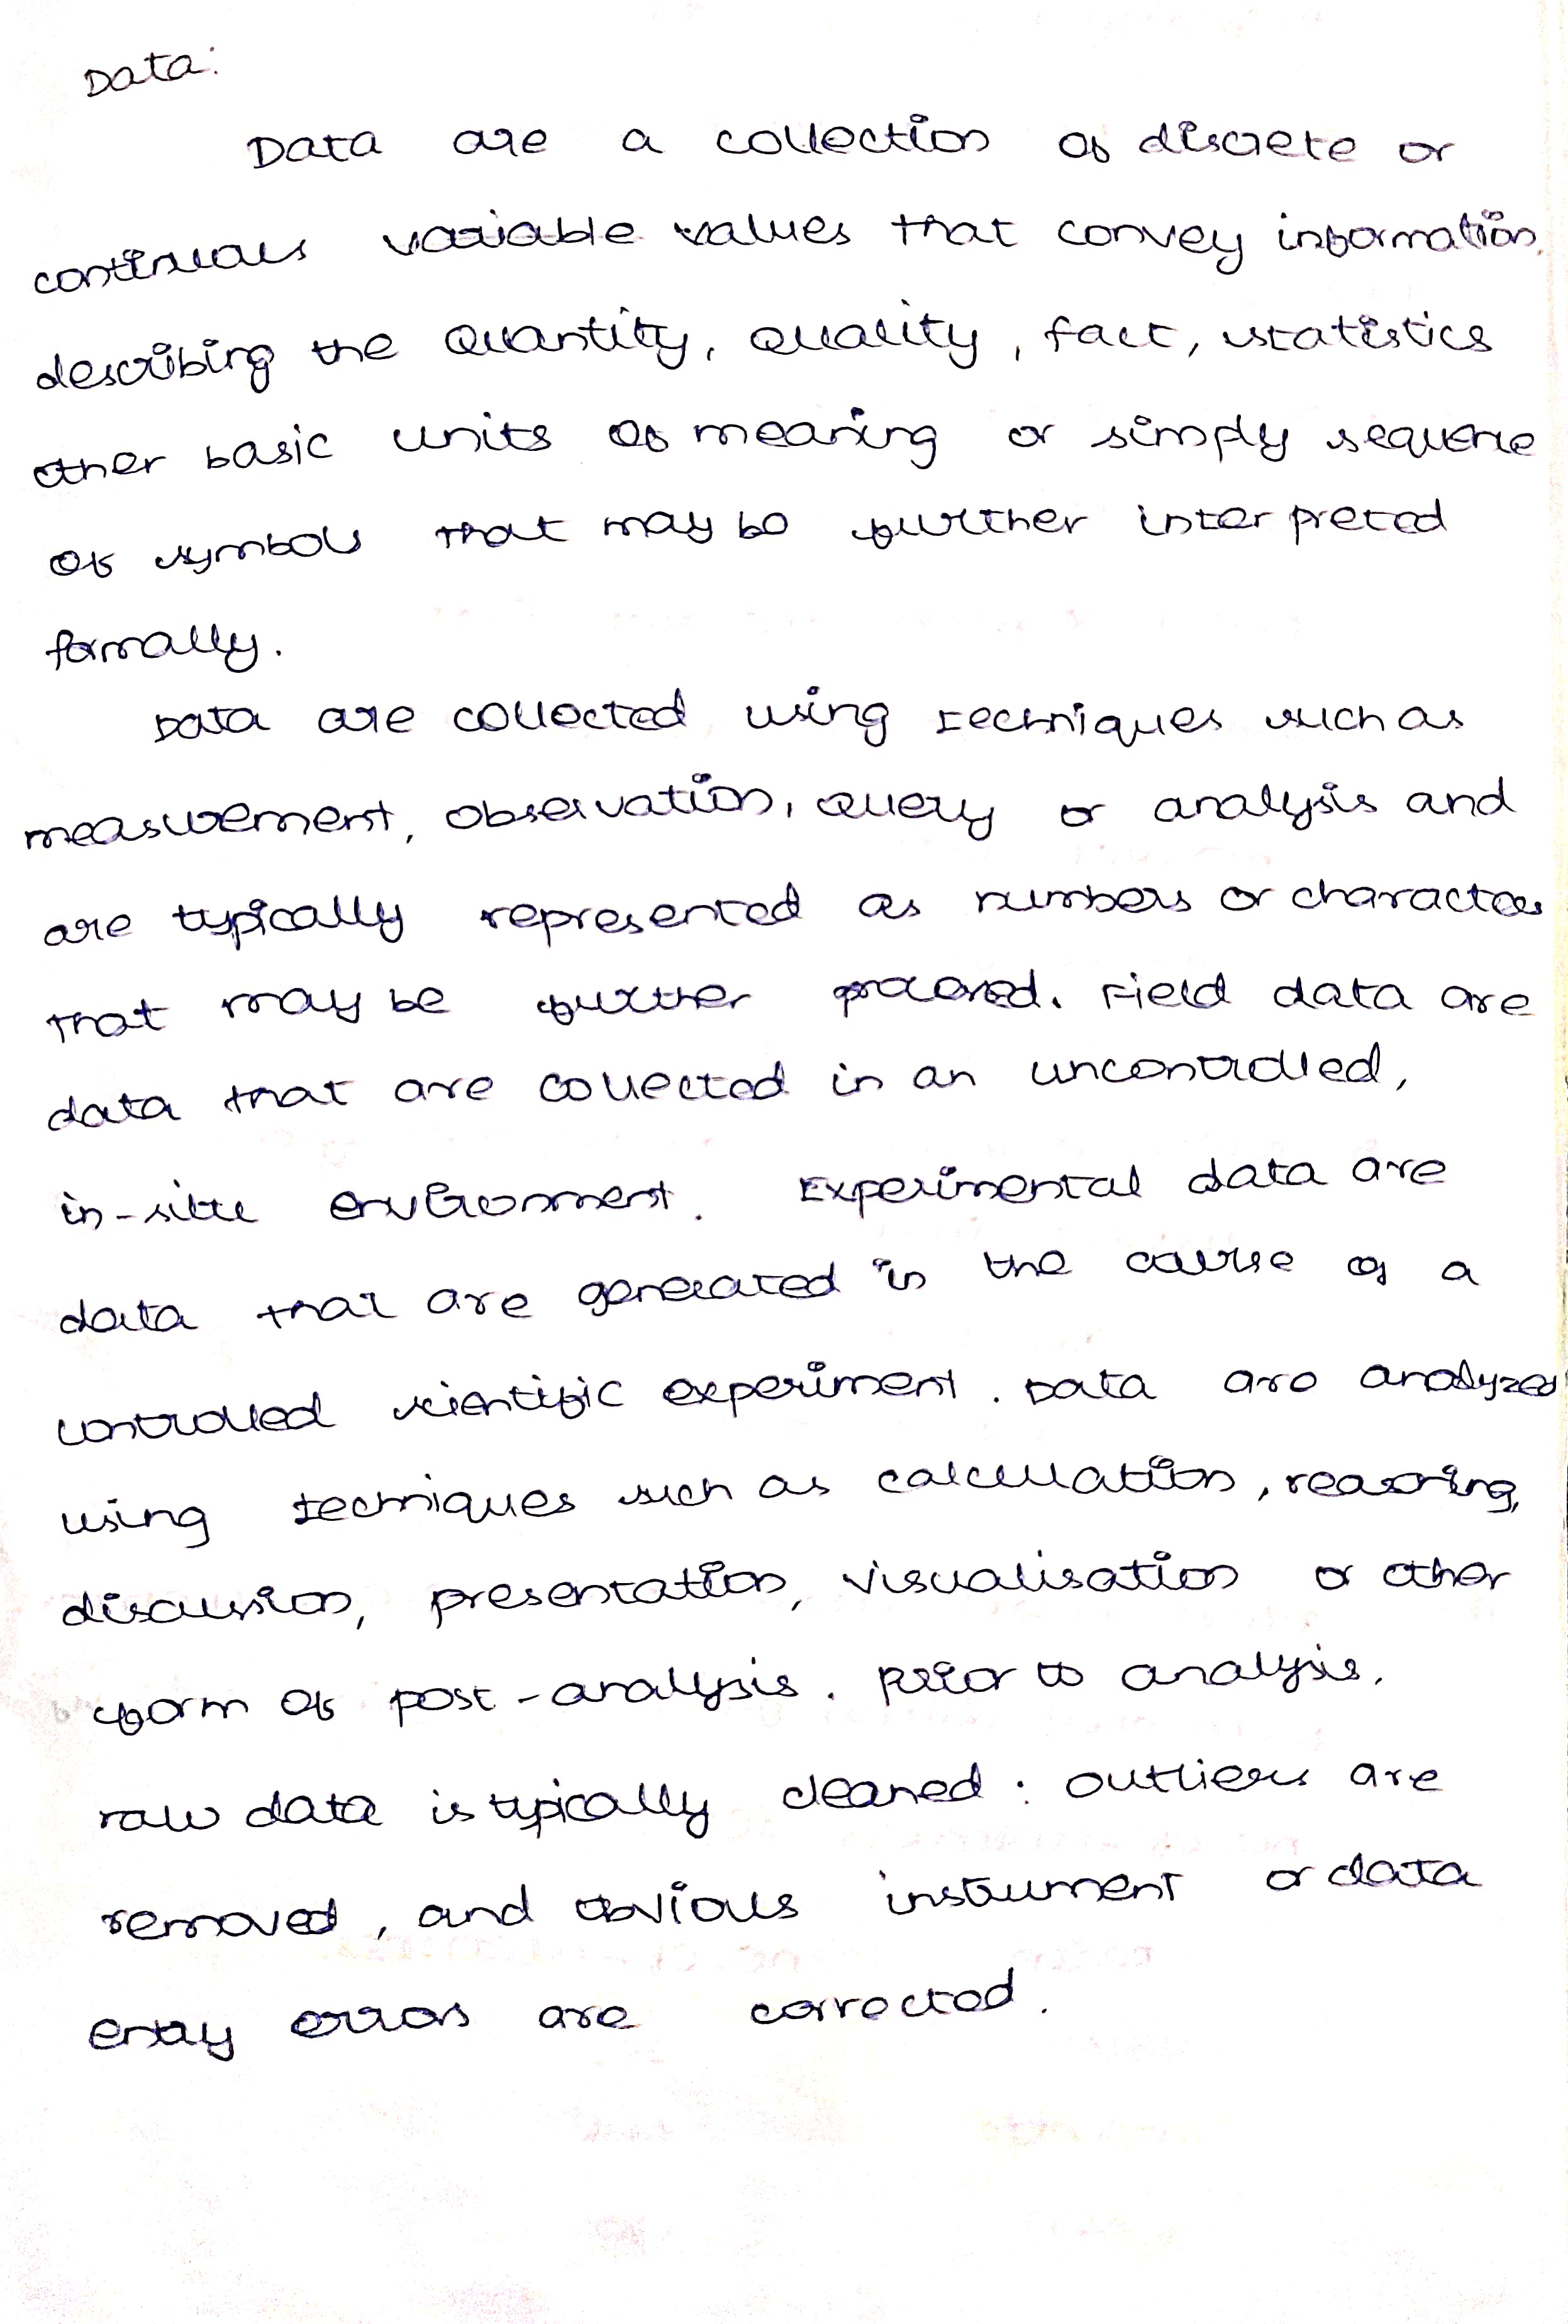 Data:
Data are a collection of discrete or
continuous variable values that convey information.
describing the quantity, quality, fact, statistics
other basic units of meaning or simply sequence
of symbols that may be further interpreted
formally.
Data are collected using techniques such as
measurement, observation, query or analysis and
are typically represented as numbers or characters
that may be further processed. Field data are
data that are collected in an uncontrolled,
in-situ environment. Experimental data are
data that are generated in the course of a
controlled scientific experiment. Data are analyzed
using techniques such as calculation, reasoning,
discussion, presentation, visualisation or other
form of post-analysis. Prior to analysis,
raw data is typically cleaned: outliers are
removed, and obvious instrument or data
entry errors are corrected.